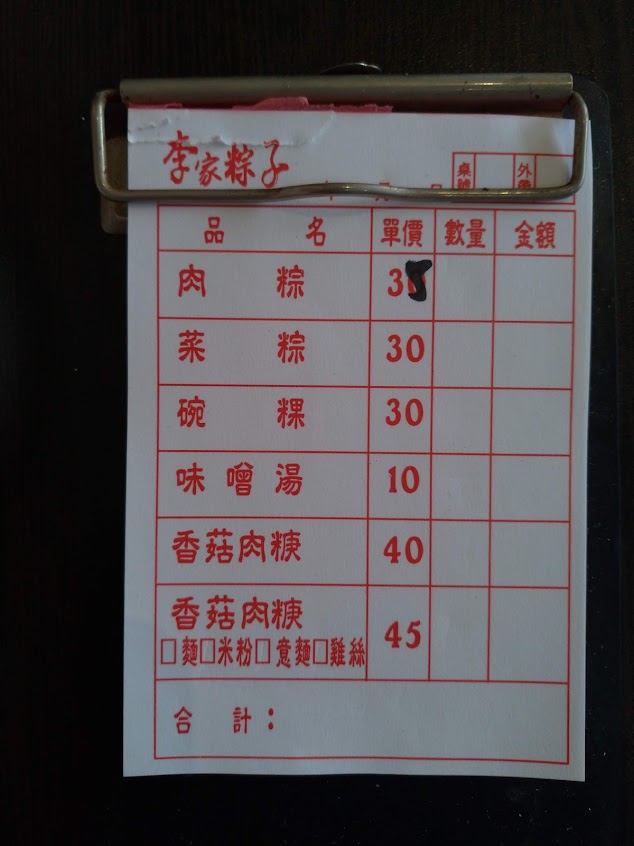 李家粽子
桌號 外帶
品名 單價 數量 金額
肉粽 35
菜粽 30
碗粿 30
味噌湯 10
香菇肉焿 40
香菇肉焿 45
□麵□米粉□意麵□雞絲
合計：